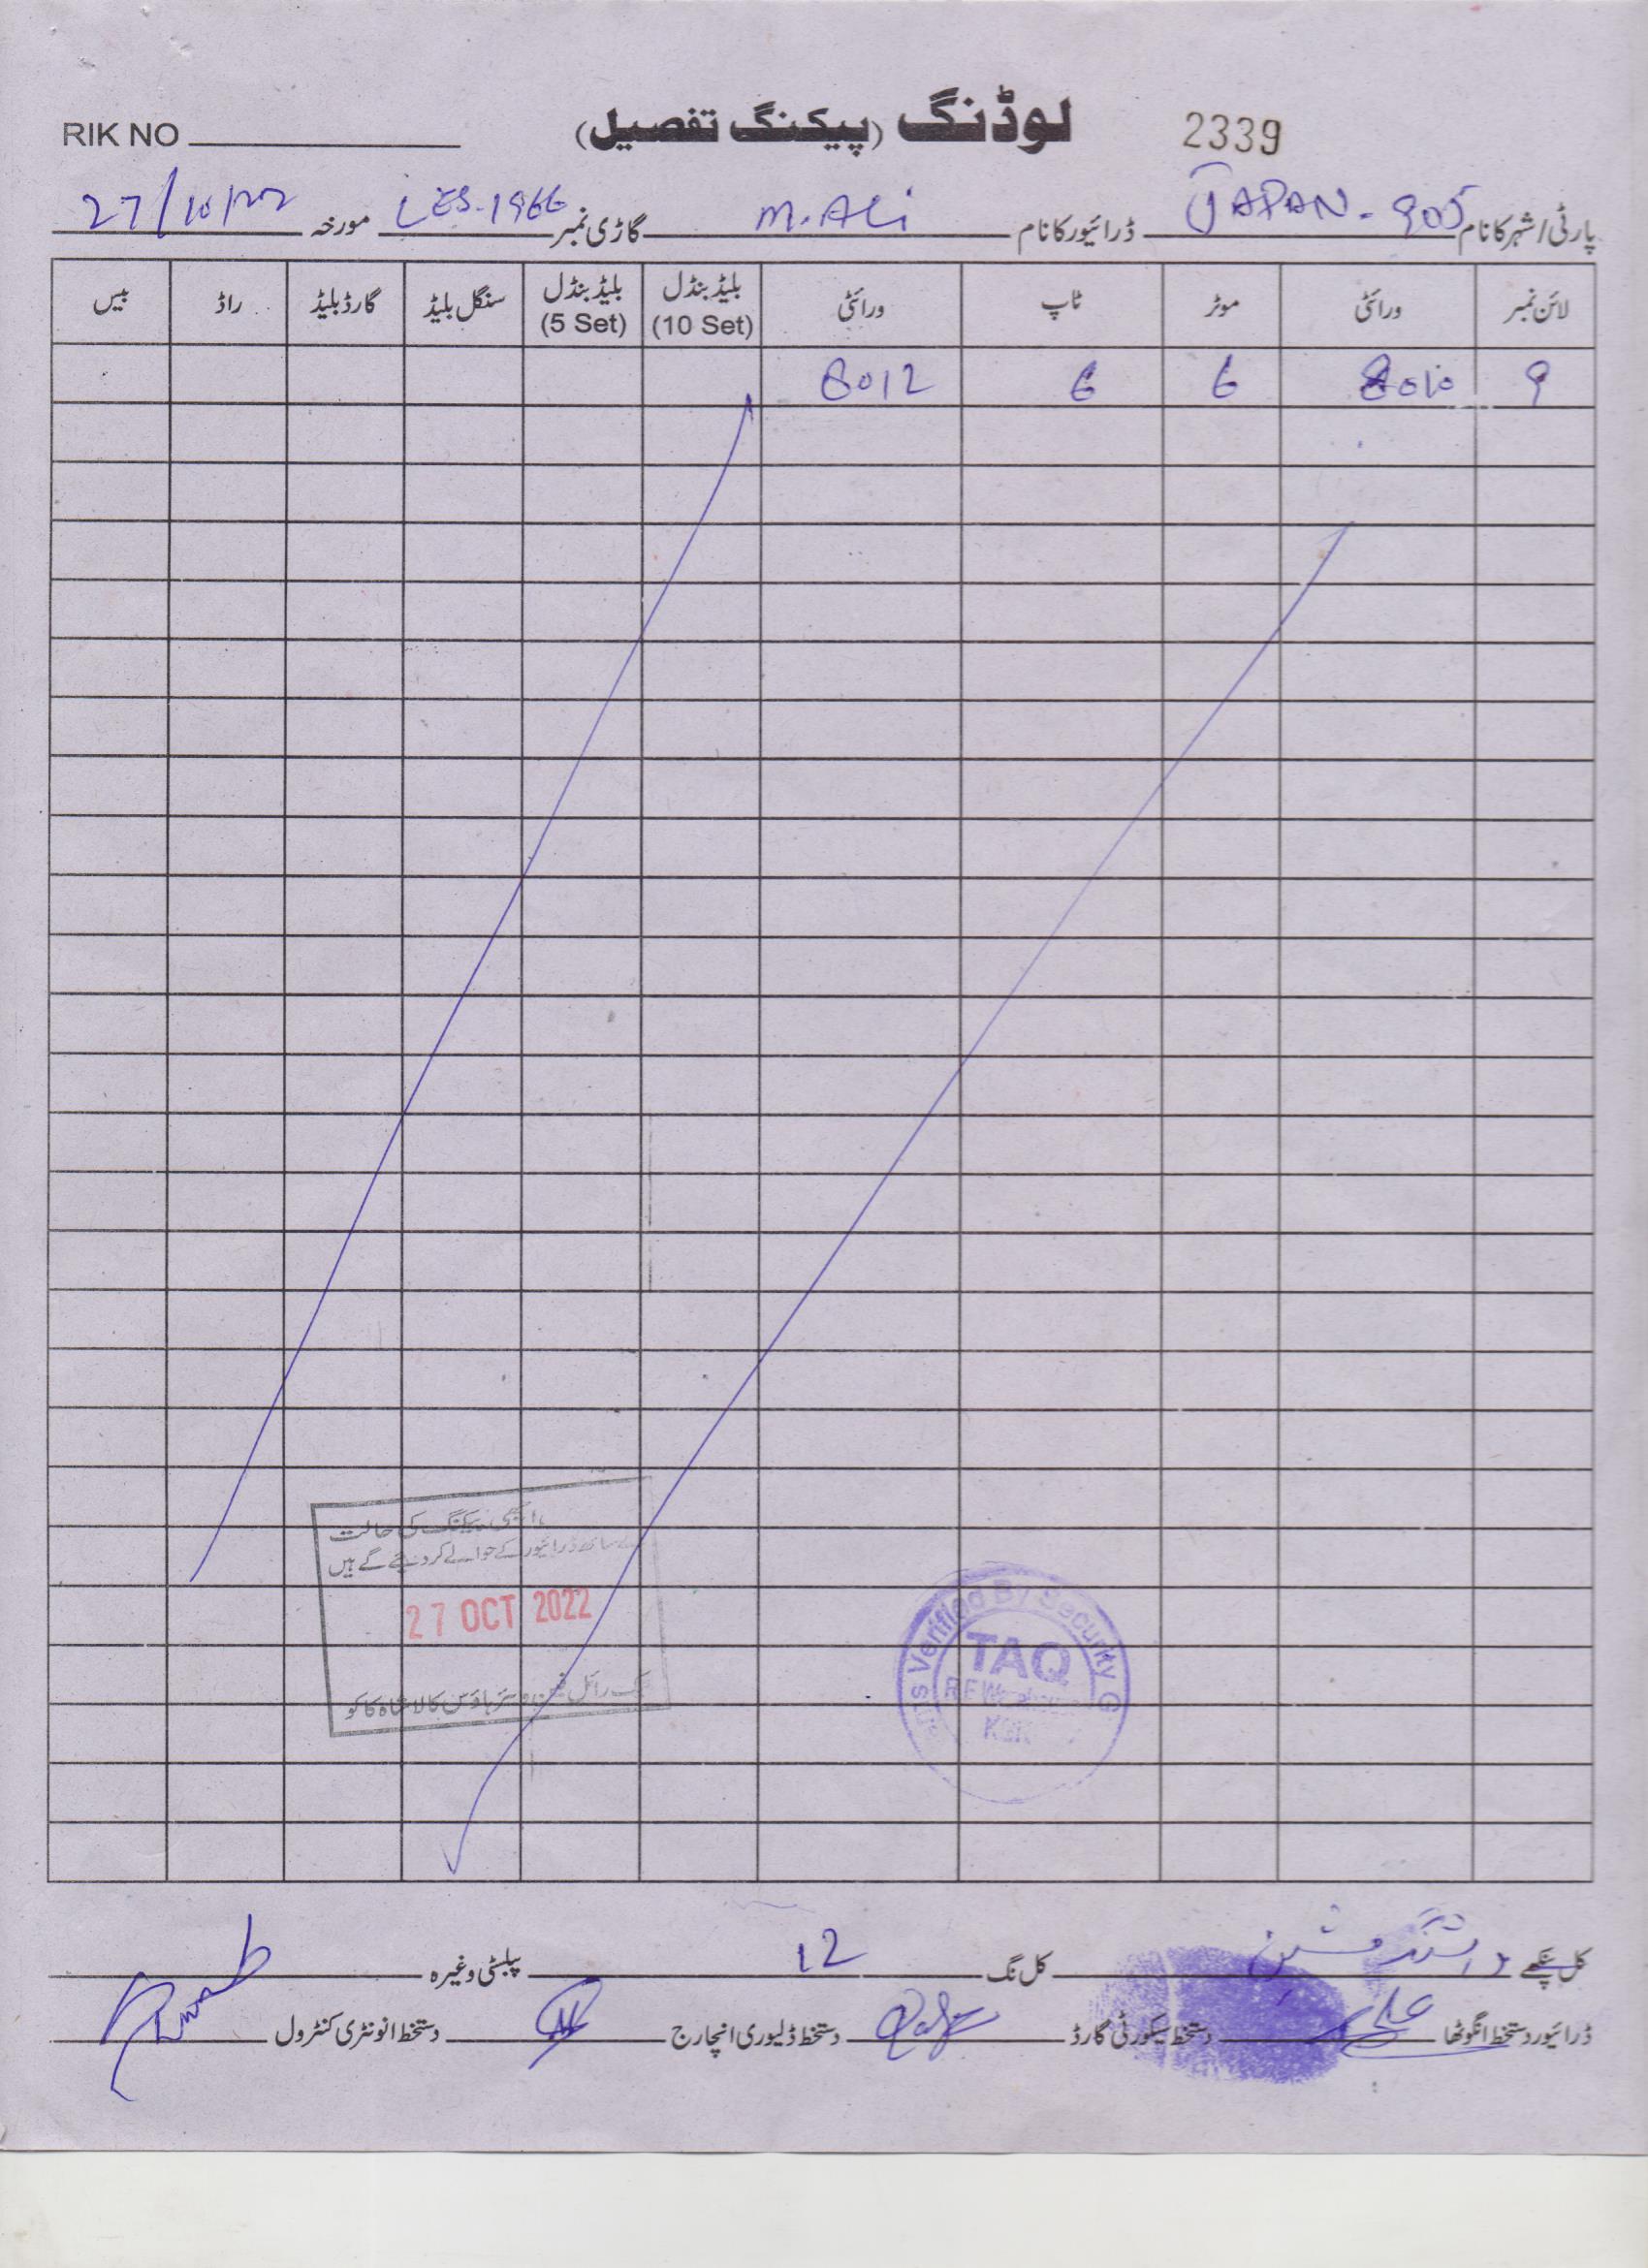 RIK NO لوڈنگ (پیکنگ تفصیل) 2339
پارٹی/شہر کا نام JAPAN - 905 ڈرائیور کا نام M. ALi گاڑی نمبر LES-1966 مورخہ 27/10/22
لائن نمبر ورائٹی موٹر ٹاپ ورائٹی بلیڈ بنڈل (10 Set) بلیڈ بنڈل (5 Set) سنگل بلیڈ گارڈ بلیڈ راڈ بیس
9 8010 6 6 8012
پیکنگ کی حالت
کے ساتھ ڈرائیور کے حوالے کر دیئے گئے ہیں
27 OCT 2022
رائل فین ویئر ہاؤس کالا شاہ کاکو
Verified By Security G
TAQ
RF
کل پنکھے واشنگ مشین کل نگ 12 پبلسٹی وغیرہ
ڈرائیور دستخط انگوٹھا علی دستخط سیکورٹی گارڈ دستخط ڈلیوری انچارج دستخط انونٹری کنٹرول